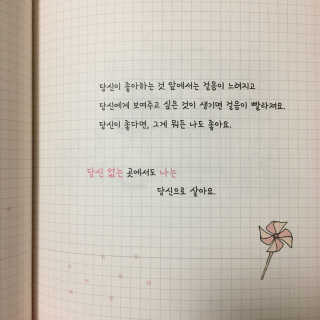 당신이 좋아하는 것 앞에서는 걸음이 느려지고
당신에게 보여주고 싶은 것이 생기면 걸음이 빨라져요.
당신이 좋다면, 그게 뭐든 나도 좋아요.
당신 없는 곳에서도 나는
당신으로 살아요.